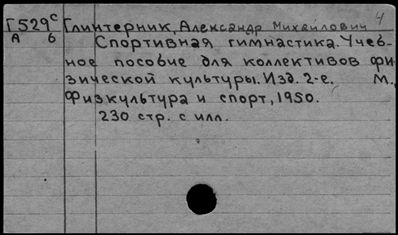 4
Г529с Глинтерник, Александр Михайлович
А 6 Спортивная гимнастика. Учеб-
ное пособие для коллективов фи
зической культуры. Изд. 2-е. М.,
Физкультура и спорт, 1950.
230 стр. с илл.